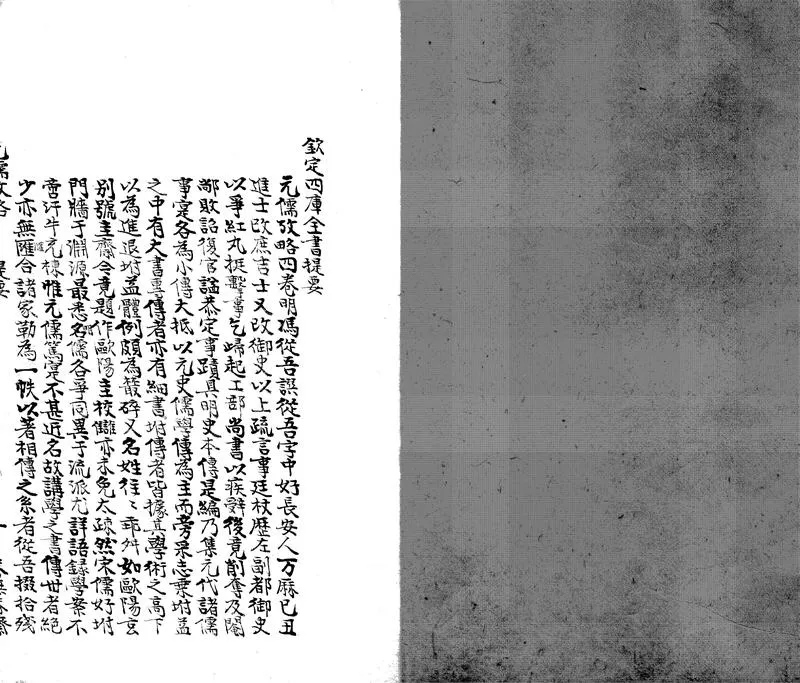 欽定四庫全書提要
元儒攷略四卷明馮從吾譔從吾字中好長安人万厤已丑
進士改庶吉士又改御史以上疏言事廷杖歷左副都御史
以爭紅丸挺擊事乞歸起工部尚書以疾辭後竟削奪及閹
鄗敗詔復官謚恭定事蹟具明史本傳是編乃集元代諸儒
事寔各為小傳大抵以元史儒學傳為主而旁采志乗坿益
之中有大書專傳者亦有細書坿傳者皆據其學術之高下
以為進退坿益體例頗為叢碎又名姓往〻乖舛如歐陽玄
别號圭齋今竟題作歐陽圭校讎亦未免太疎然宋儒好坿
門牆于淵源最悉名儒各爭同異于流派尤詳語錄學案不
啻汗牛充棟惟元儒篤寔不甚近名故講學之書傳世者絕
少亦無匯合諸家勒為一帙以著相傳之系者從吾掇拾殘
元儒攷略 提要 一